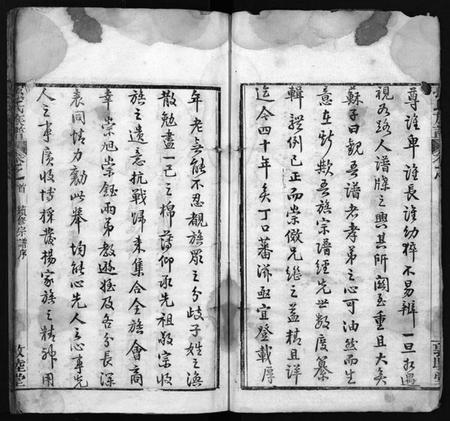 尊誰卑誰長誰幼猝不易辨一旦相遇
視為路人譜牒之興其所關至重且大矣
蘇子曰觀吾譜者孝弟之心可油然而生
意在斯歟吾族宗譜經先世數度纂
輯體例已正而崇儆兄繼之益精且詳
迄今四十年矣丁口蕃滋亟宜登載厚
年老吾能不忍覩族眾之分歧子姓之渙
散勉盡一己之棉薄仰承先祖敬宗收
族之遺意抗戰歸來集合全族會商
幸崇旭崇鈺兩弟教遊姪及各分長深
表同情力勷此舉均能心先人之心事先
人之事廣收博採發揚家族之精神用
氏族譜
卷之首
續修宗譜序
敦睦堂